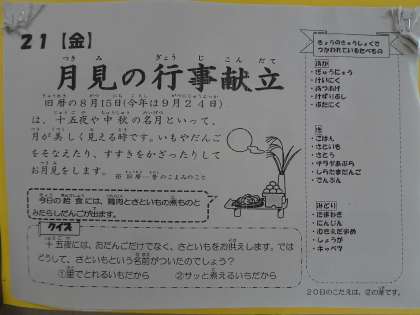 21【金】
月見の行事献立
旧暦の8月15日(今年は9月24日)
は、十五夜や中秋の名月といって、
月が美しく見える時です。いもやだんご
をそなえたり、すすきをかざったりして
お月見をします。
今日の給食には、鶏肉とさといもの煮ものと
みたらしだんごが出ます。
クイズ
十五夜には、おだんごだけでなく、さといもをお供えします。では
どうして、さといもという名前がついたのでしょう?
①里でとれるいもだから ②サッと煮えるいちから
きょうのきゅうしょくで
つかわれているたべもの
あか
・ぎゅうにゅう
・けいにく
・あつあげ
・ぶたにく
き
・ごはん
・さといも
・さとう
・サラダあぶら
・しらたまだんご
・でんぷん
みどり
・たまねぎ
・にんじん
・しょうが
・キャベツ
20日のこたえは、②の栗です。